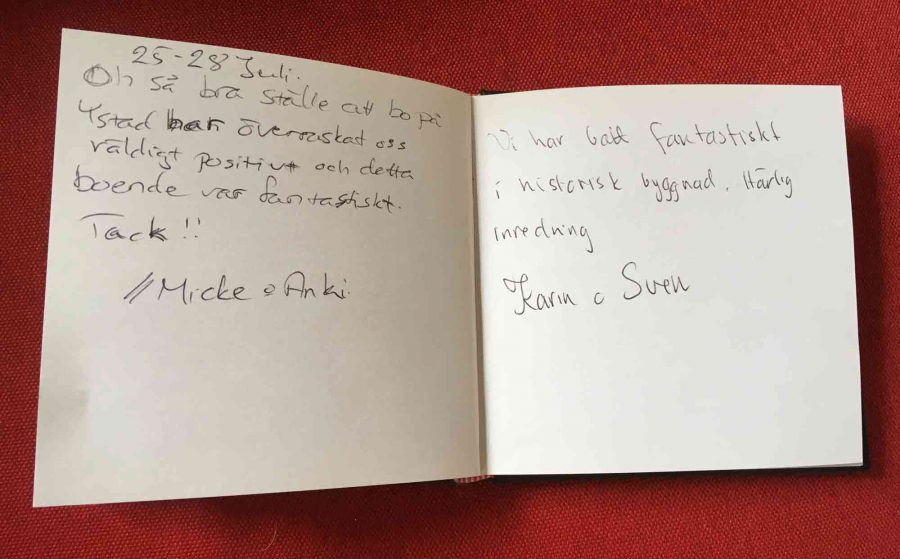 25-28 Juli.
Oh så bra ställe att bo på
Ystad har överraskat oss
väldigt positivt och detta
boende var fantastiskt.
Tack!!
//Micke o Anki.
Vi har bott fantastiskt
i historisk byggnad. Härlig
inredning
Karin o Sven